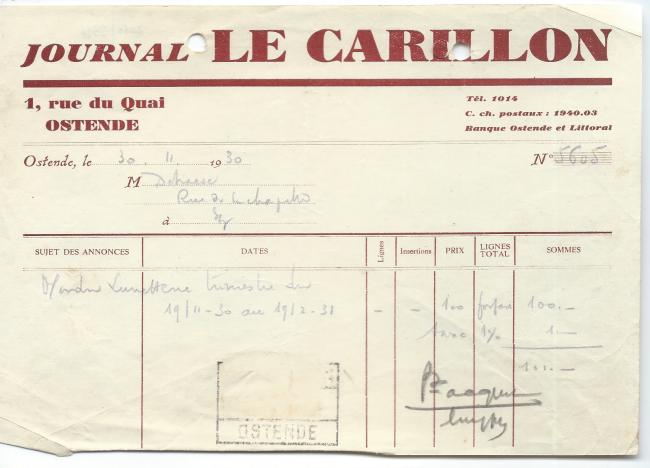 JOURNAL LE CARILLON
1, rue du Quai
OSTENDE
Tél. 1014
C. ch. postaux : 1940.03
Banque Ostende et Littoral
Ostende, le 30. 11. 1930
N° 5605
M
Rue de la chapelle
à
SUJET DES ANNONCES DATES Lignes Insertions PRIX LIGNES TOTAL SOMMES
Lunetterie trimestre du
19/11-30 au 19/2-31 - - 100 forfait 100.-
taxe 1% 1.-
101.-
OSTENDE